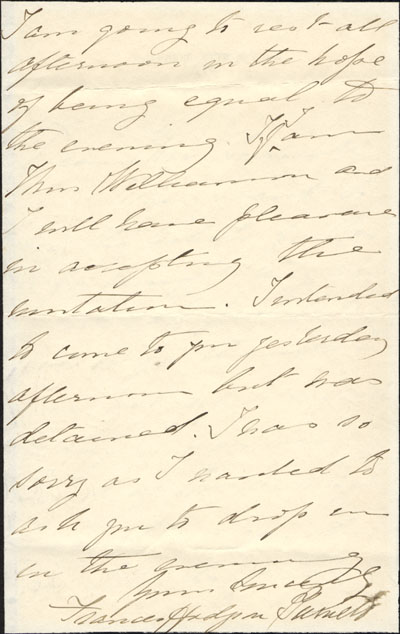 I am going to rest all
afternoon in the hope
of being equal to
the evening. If I am
Miss Williamson and
I will have pleasure
in accepting the
invitation. I intended
to come to you yesterday
afternoon but was
detained. I was so
sorry as I wanted to
ask you to drop in
in the evening
Yours sincerely
Frances Hodgson Burnett